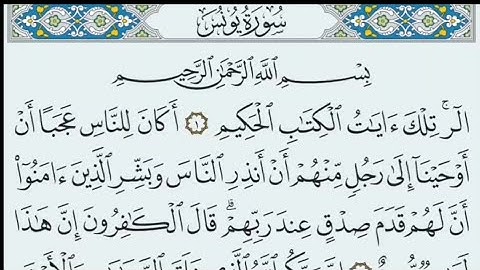 سُورَةُ يُونُسَ
بِسْمِ اللَّهِ الرَّحْمَٰنِ الرَّحِيمِ
الٓرۚ تِلْكَ ءَايَٰتُ ٱلْكِتَٰبِ ٱلْحَكِيمِ ١ أَكَانَ لِلنَّاسِ عَجَبًا أَنْ
أَوْحَيْنَآ إِلَىٰ رَجُلٍ مِّنْهُمْ أَنْ أَنذِرِ ٱلنَّاسَ وَبَشِّرِ ٱلَّذِينَ ءَامَنُوٓا۟
أَنَّ لَهُمْ قَدَمَ صِدْقٍ عِندَ رَبِّهِمْۗ قَالَ ٱلْكَٰفِرُونَ إِنَّ هَٰذَا